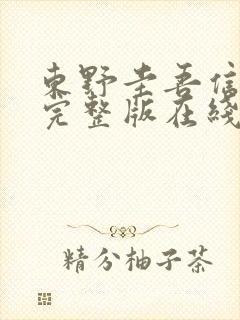 東野圭吾信
完整版在綫
精分柚子茶